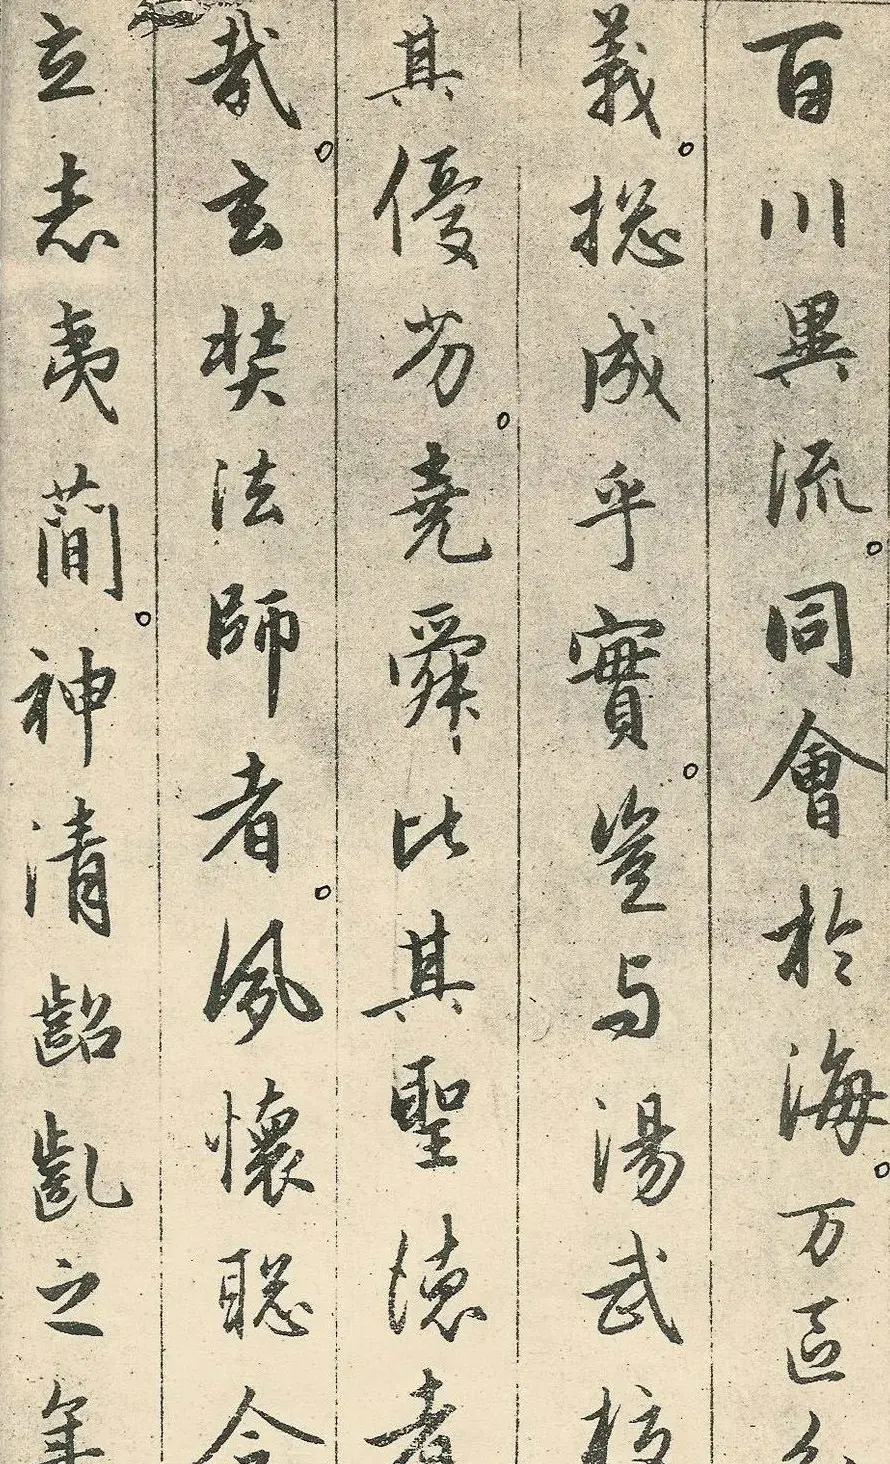 百川異流。同會於海。万區分
義。捴成乎實。豈与湯武校
其優劣。堯舜比其聖德者
哉。玄奘法師者。夙懷聡令
立志夷蕳。神清齠齔之年